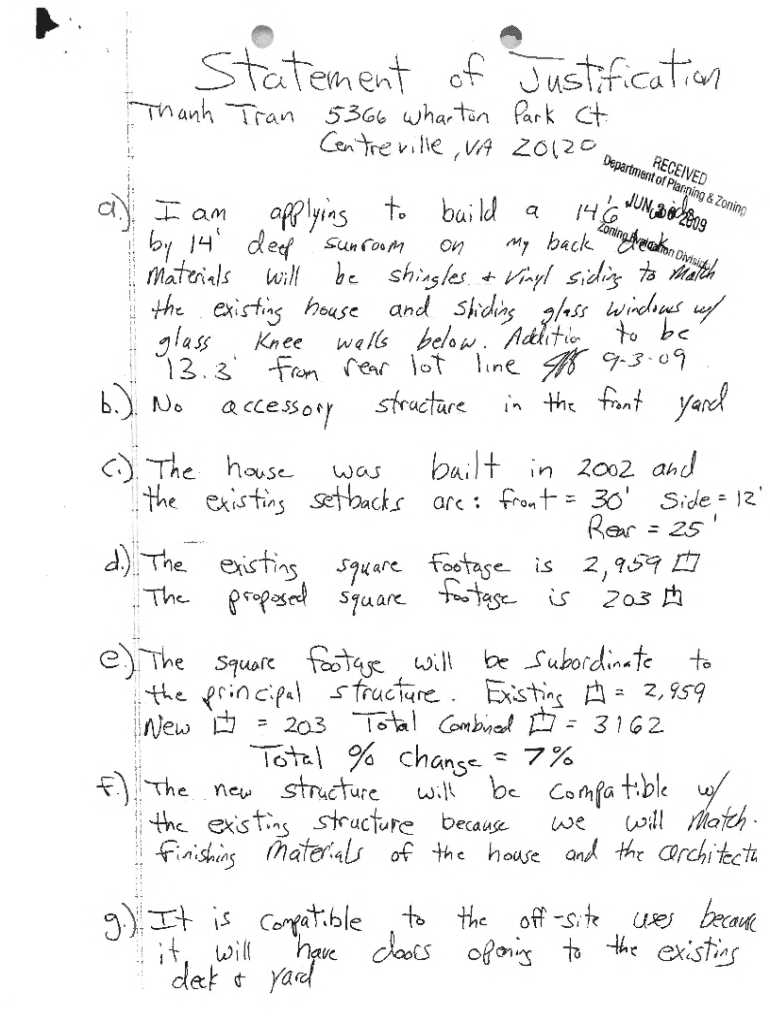 Statement of Justification
Thanh Tran 5366 Wharton Park Ct.
Centreville, VA 20120
RECEIVED
Department of Planning & Zoning
JUN 2009
Zoning Evaluation Division
a.) I am applying to build a 14'6" wide
by 14' deep sunroom on my back deck
Materials will be shingles + vinyl siding to match
the existing house and sliding glass windows w/
glass knee walls below. Additio to be
13.3' from rear lot line 9-3-09
b.) No accessory structure in the front yard
c.) The house was built in 2002 and
the existing setbacks are: front = 30' Side = 12'
Rear = 25'
d.) The existing square footage is 2,959
The proposed square footage is 203
e.) The square footage will be subordinate to
the principal structure. Existing = 2,959
New = 203 Total Combined = 3162
Total % change = 7%
f.) The new structure will be compatible w/
the existing structure because we will match
finishing materials of the house and the architectu
g.) It is compatible to the off-site uses because
it will have doors opening to the existing
deck + yard